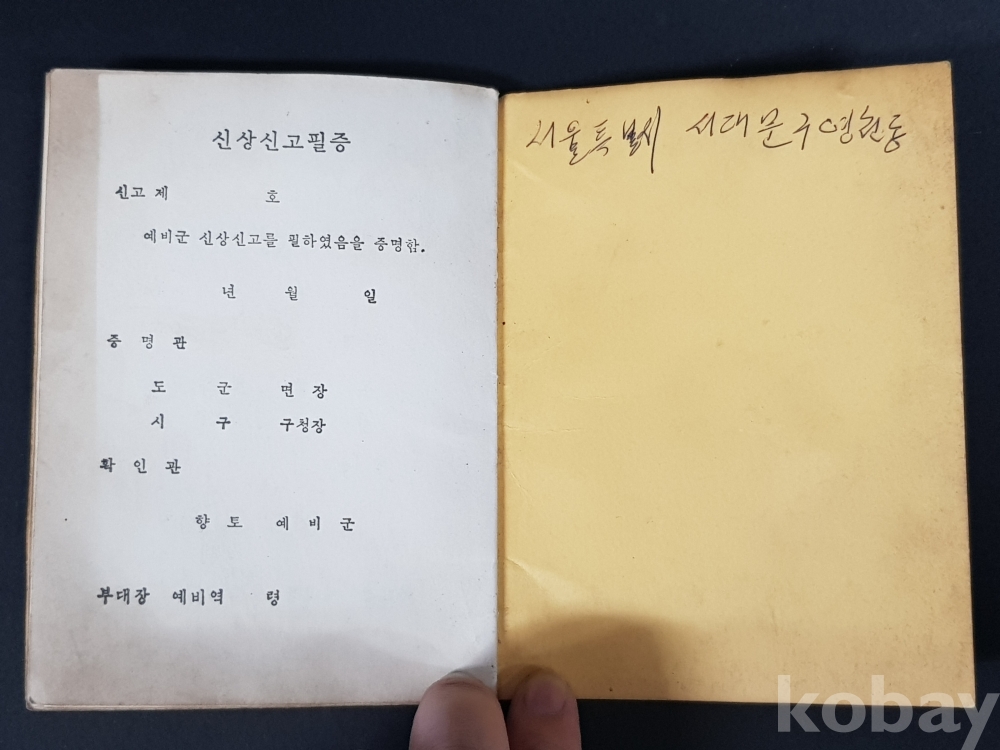 신상신고필증
신고 제 호
예비군 신상신고를 필하였음을 증명함.
년 월 일
증 명 관
도 군 면 장
시 구 구청장
확 인 관
향 토 예 비 군
부대장 예비역 령
서울특별시 서대문구 영천동
kobay